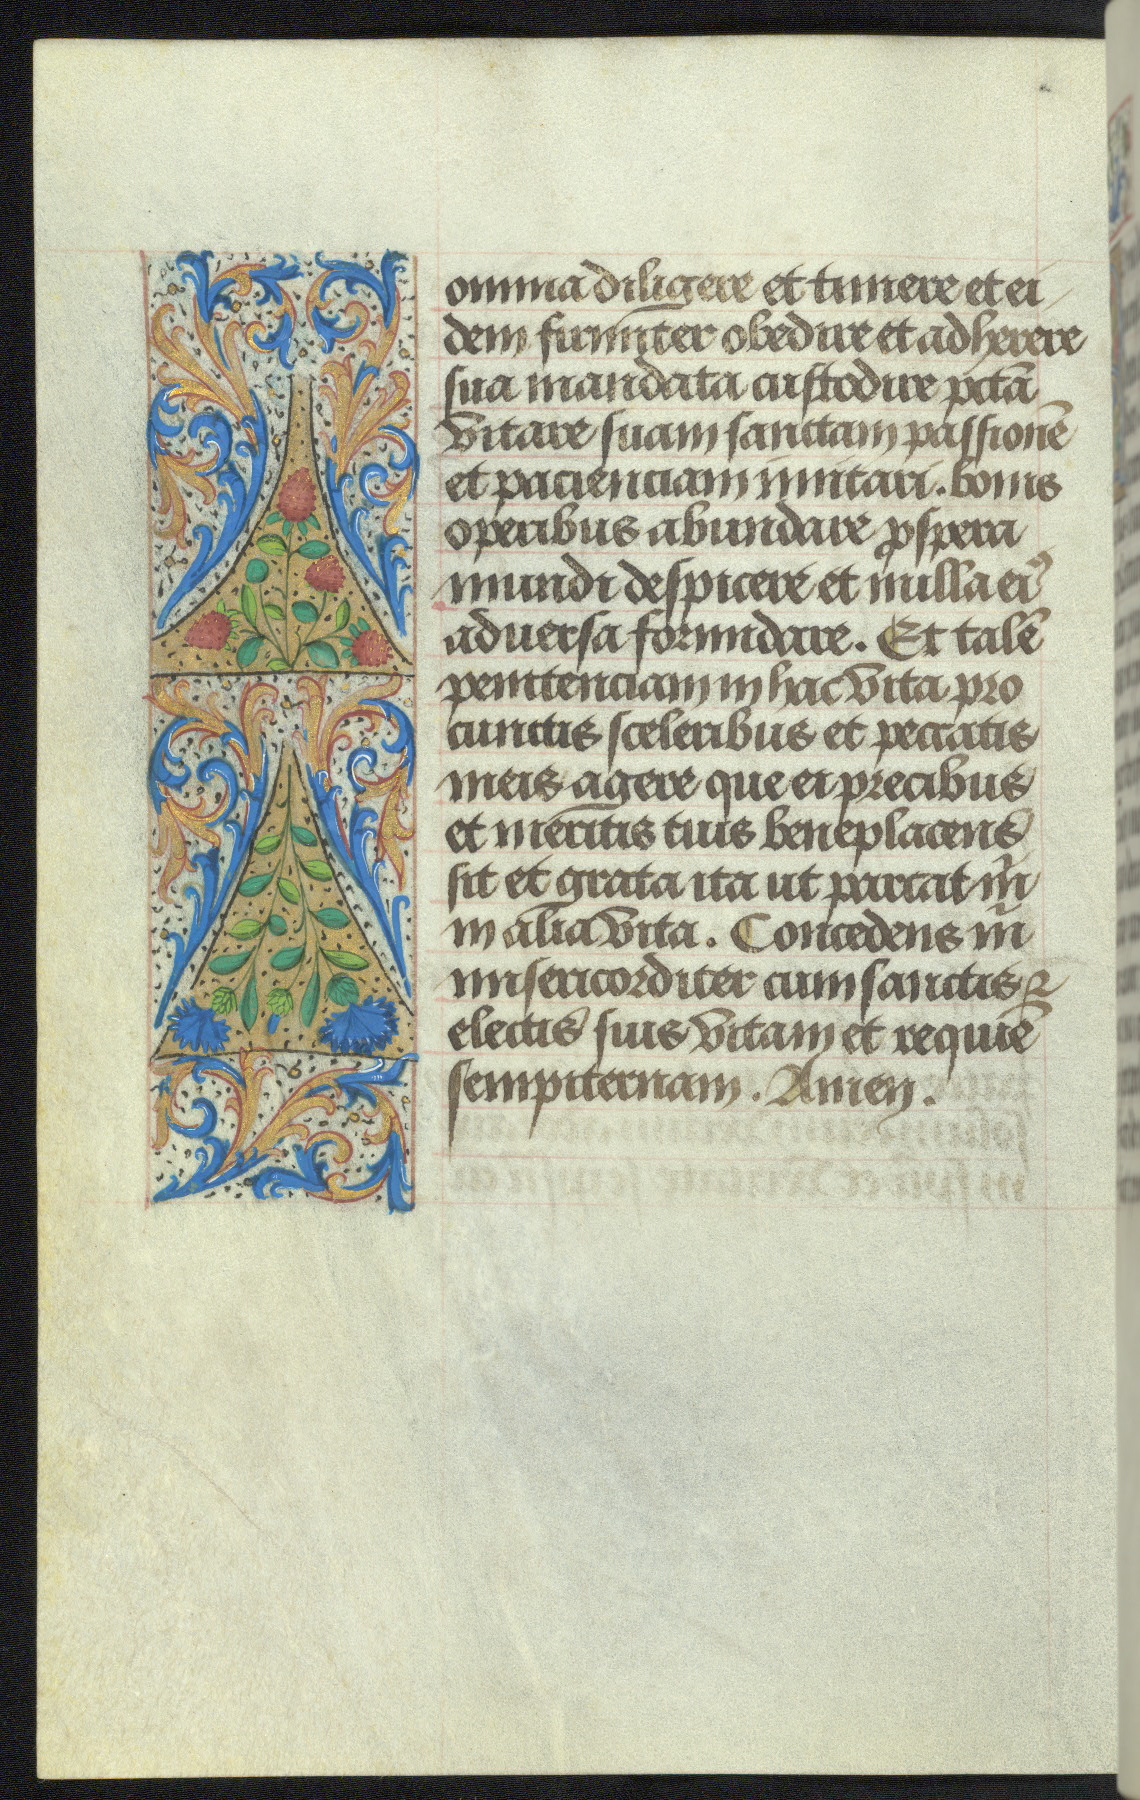 omnia diligere et timere et ei
dem firmiter obedire et adherere
sua mandata custodire pctā
vitare suam sanctam passionē
et pacienciam imitari. bonis
operibus abundare ꝓspera
mundi despicere et nulla eiꝰ
adversa formidare. Et talē
penitenciam in hac vita pro
cunctis sceleribus et peccatis
meis agere que ei precibus
et meritis tuis beneplacens
sit et grata ita ut parcat m̄
in alia vita. Concedens m̄
misericorditer cum sanctis ⁊
electis suis vitam et requiē
sempiternam. Amen.